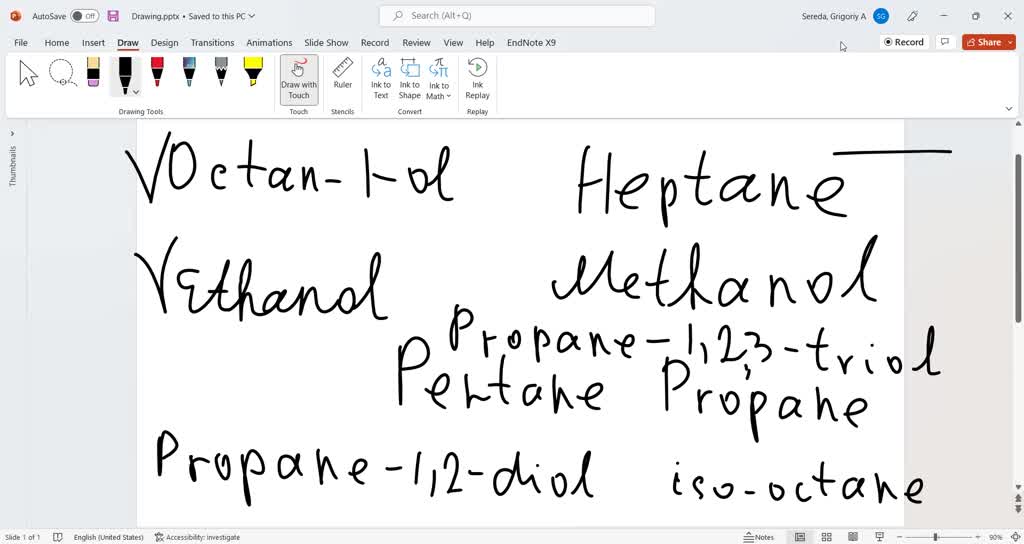 AutoSave Off Drawing.pptx • Saved to this PC Search (Alt+Q) Sereda, Grigoriy A SG
File Home Insert Draw Design Transitions Animations Slide Show Record Review View Help EndNote X9 Record Share
Draw with Touch Ruler Ink to Text Ink to Shape Ink to Math Ink Replay
Drawing Tools Touch Stencils Convert Replay
Thumbnails
√Octan-1-ol Heptane
√Ethanol Methanol
Propane-1,2,3-triol
Pentane Propane
Propane-1,2-diol iso-octane
Slide 1 of 1 English (United States) Accessibility: Investigate Notes 90%